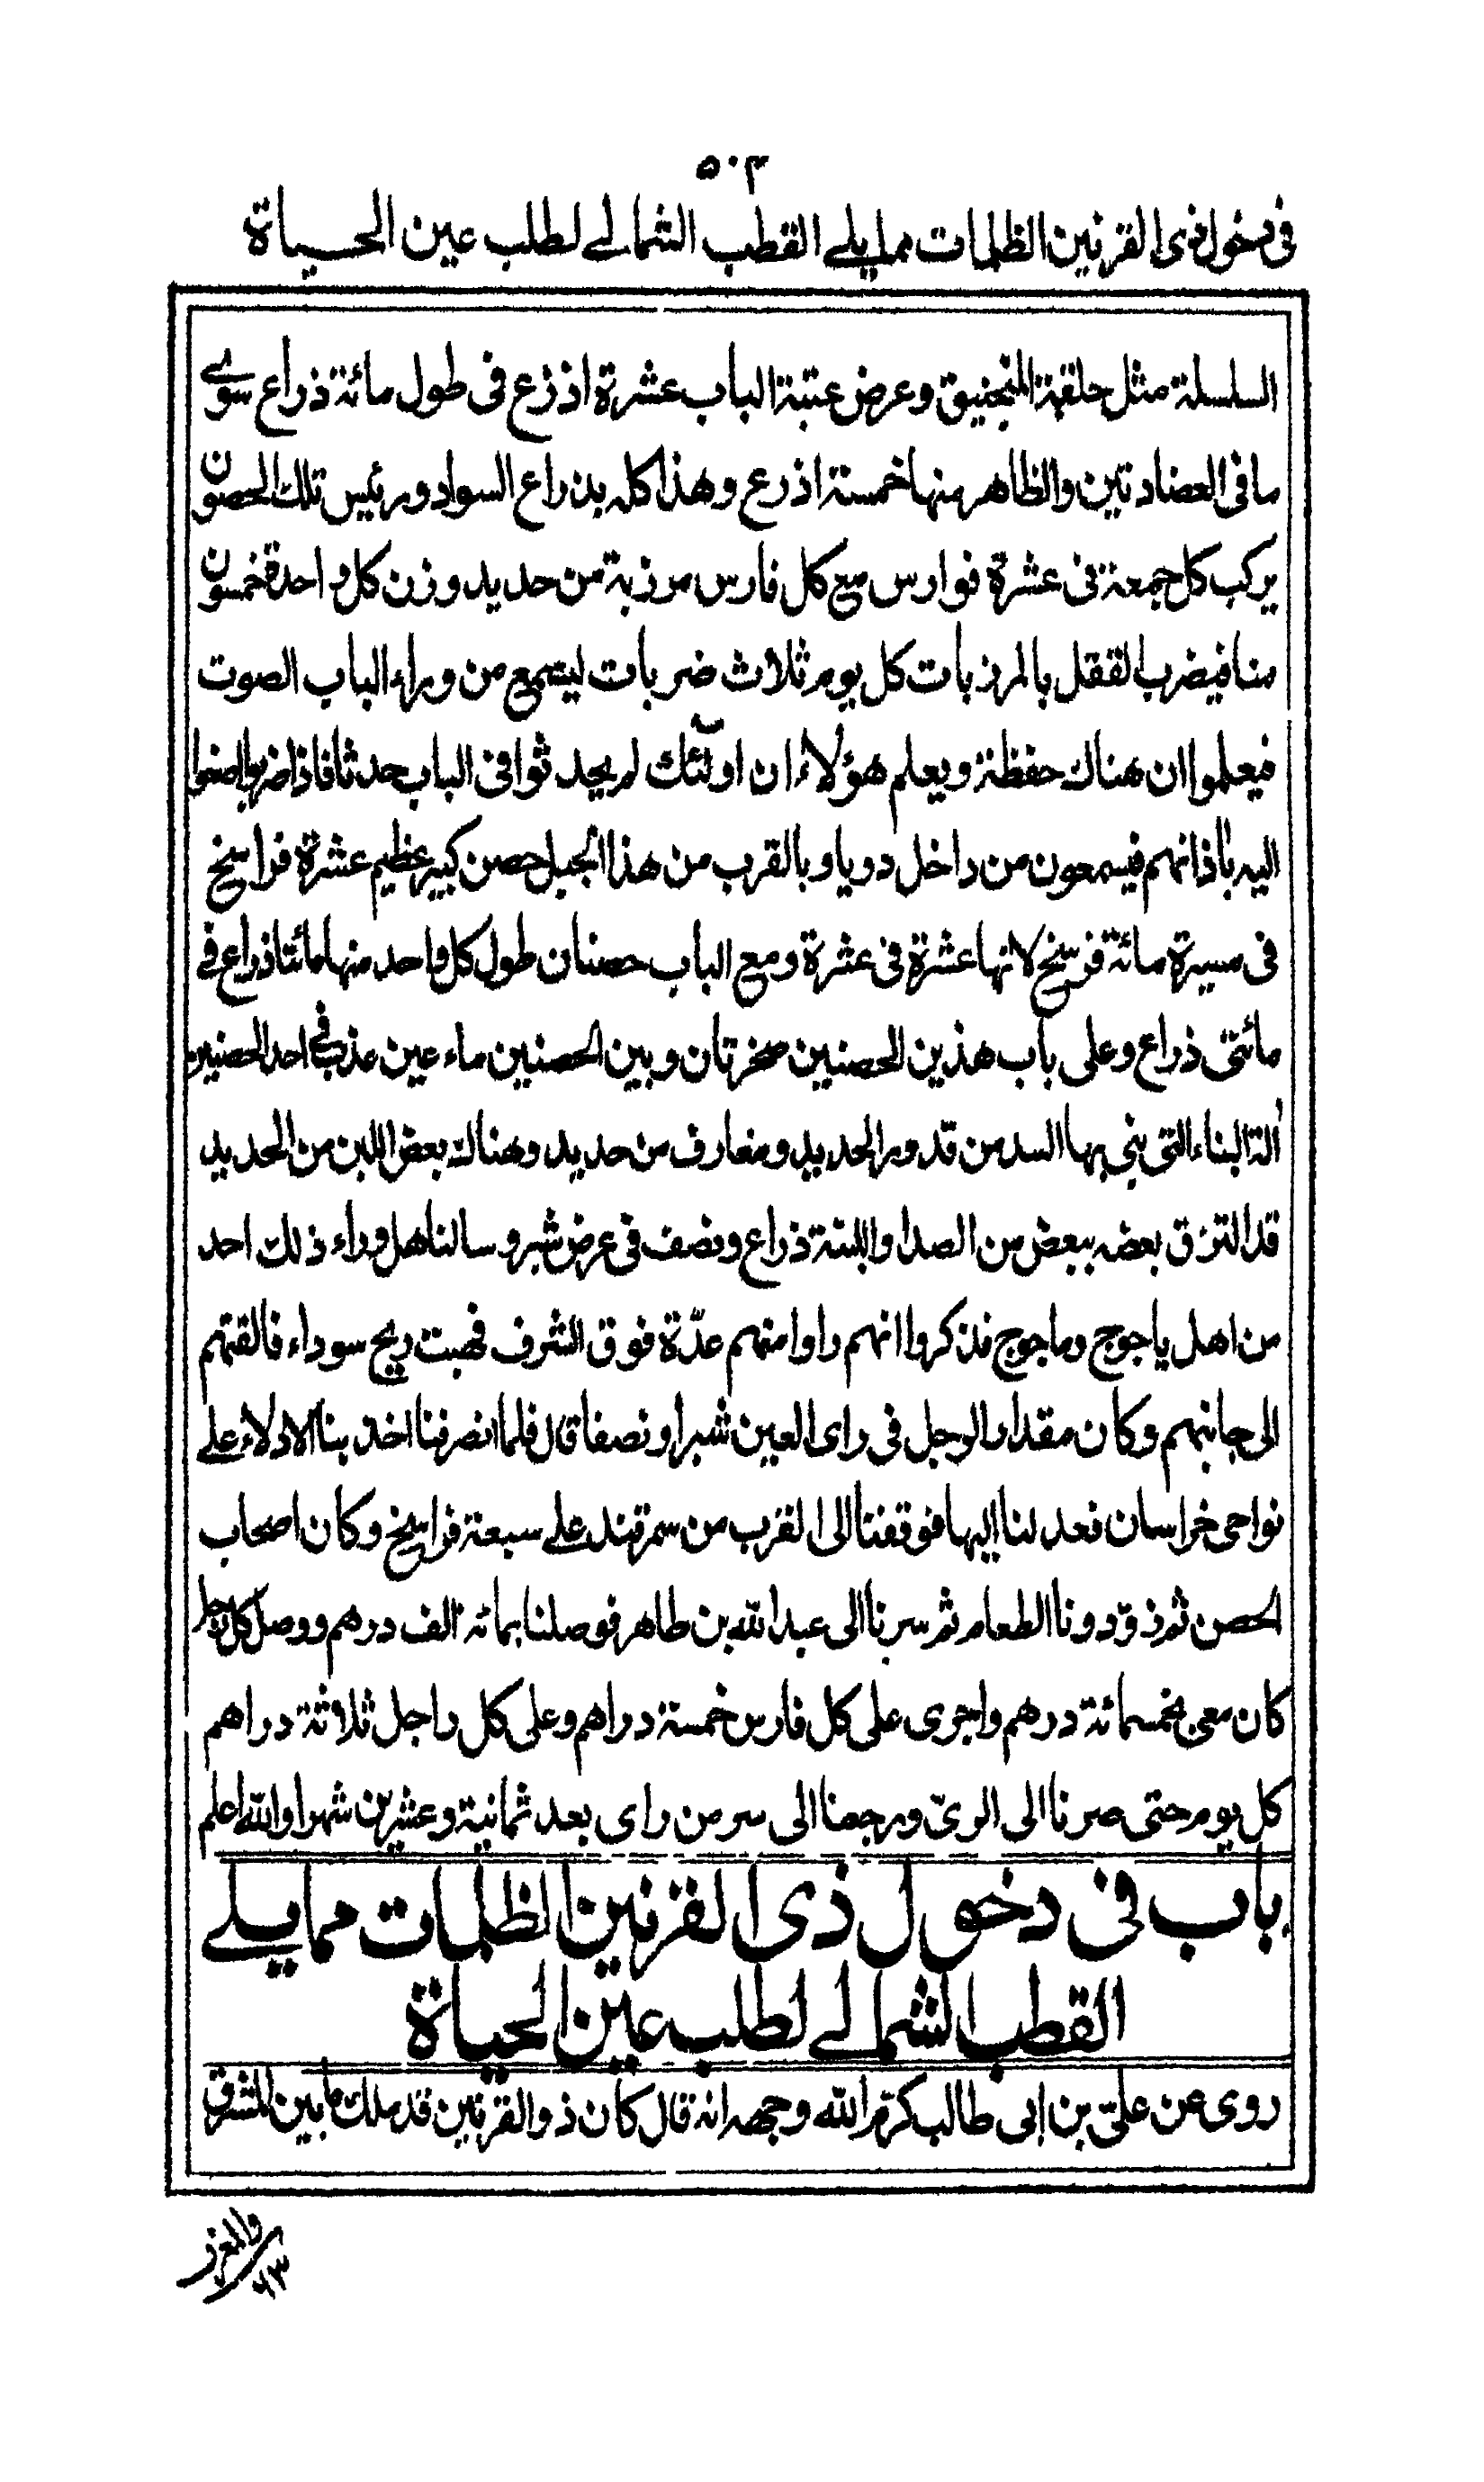 ٥٠٣
في دخول ذى القرنين الظلمات مما يلے القطب الشمالے لطلب عين الحياة
السلسلة مثل حلقة المنجنيق وعرض عتبة الباب عشرة اذرع فى طول مائة ذراع سوے
ما فى العضادتين والظاهر منها خمسة اذرع وهذا كله بذراع السواد ورئيس تلك الحصون
يركب كل جمعة فى عشرة فوارس مع كل فارس مرزبة من حديد وزن كل واحدة خمسون
منا فيضرب القفل بالمرزبات كل يوم ثلاث ضربات ليسمع من وراء الباب الصوت
فيعلموا ان هناك حفظة ويعلم هؤلاء ان اولٓئك لم يحدثوا فى الباب حدثا فاذا ضربوا اصغوا
اليه باذانهم فيسمعون من داخل دويا وبالقرب من هذا الجبل حصن كبير عظيم عشرة فراسخ
فى مسيرة مائة فرسخ لانها عشرة فى عشرة ومع الباب حصنان طول كل واحد منهما مائتا ذراع فے
مائتى ذراع وعلى باب هذين الحصنين صخرتان وبين الحصنين ماء عين عذب فے احد الحصنين
ألة البناء التى بنى بها السد من قدور الحديد ومغارف من حديد وهناك بعض اللبن من الحديد
قد التزق بعضه ببعض من الصدا واللبنة ذراع ونصف فى عرض شبر وسالنا هل وراء ذلك احد
من اهل ياجوج وماجوج فذكروا انهم راوا منهم عدّة فوق الشرف فهبت ريح سوداء فالقتهم
الى جانبهم وكان مقدار الرجل فى راى العين شبرا ونصفا قال فلما انصرفنا اخذ بنا الادلاء علے
نواحى خراسان فعدلنا اليها فوقفنا الى القرب من سمرقند علے سبعة فراسخ وكان اصحاب
الحصن ثم زوّدونا الطعام ثم سرنا الى عبد الله بن طاهر فوصلنا بمائة الف درهم ووصل كل رجل
كان معى بخمسمائة درهم واجرى على كل فارس خمسة دراهم وعلى كل راجل ثلاثة دراهم
كل يوم حتى صرنا الى الرىّ ورجعنا الى سر من راى بعد ثمانية وعشرين شهرا والله اعلم
باب فى دخول ذى القرنين الظلمات مما يلے
القطب الشمالے لطلب عين الحياة
روى عن علىّ بن ابى طالب كرّم الله وجهه انه قال كان ذو القرنين قد ملك ما بين المشرق
والمغرب
٦٣